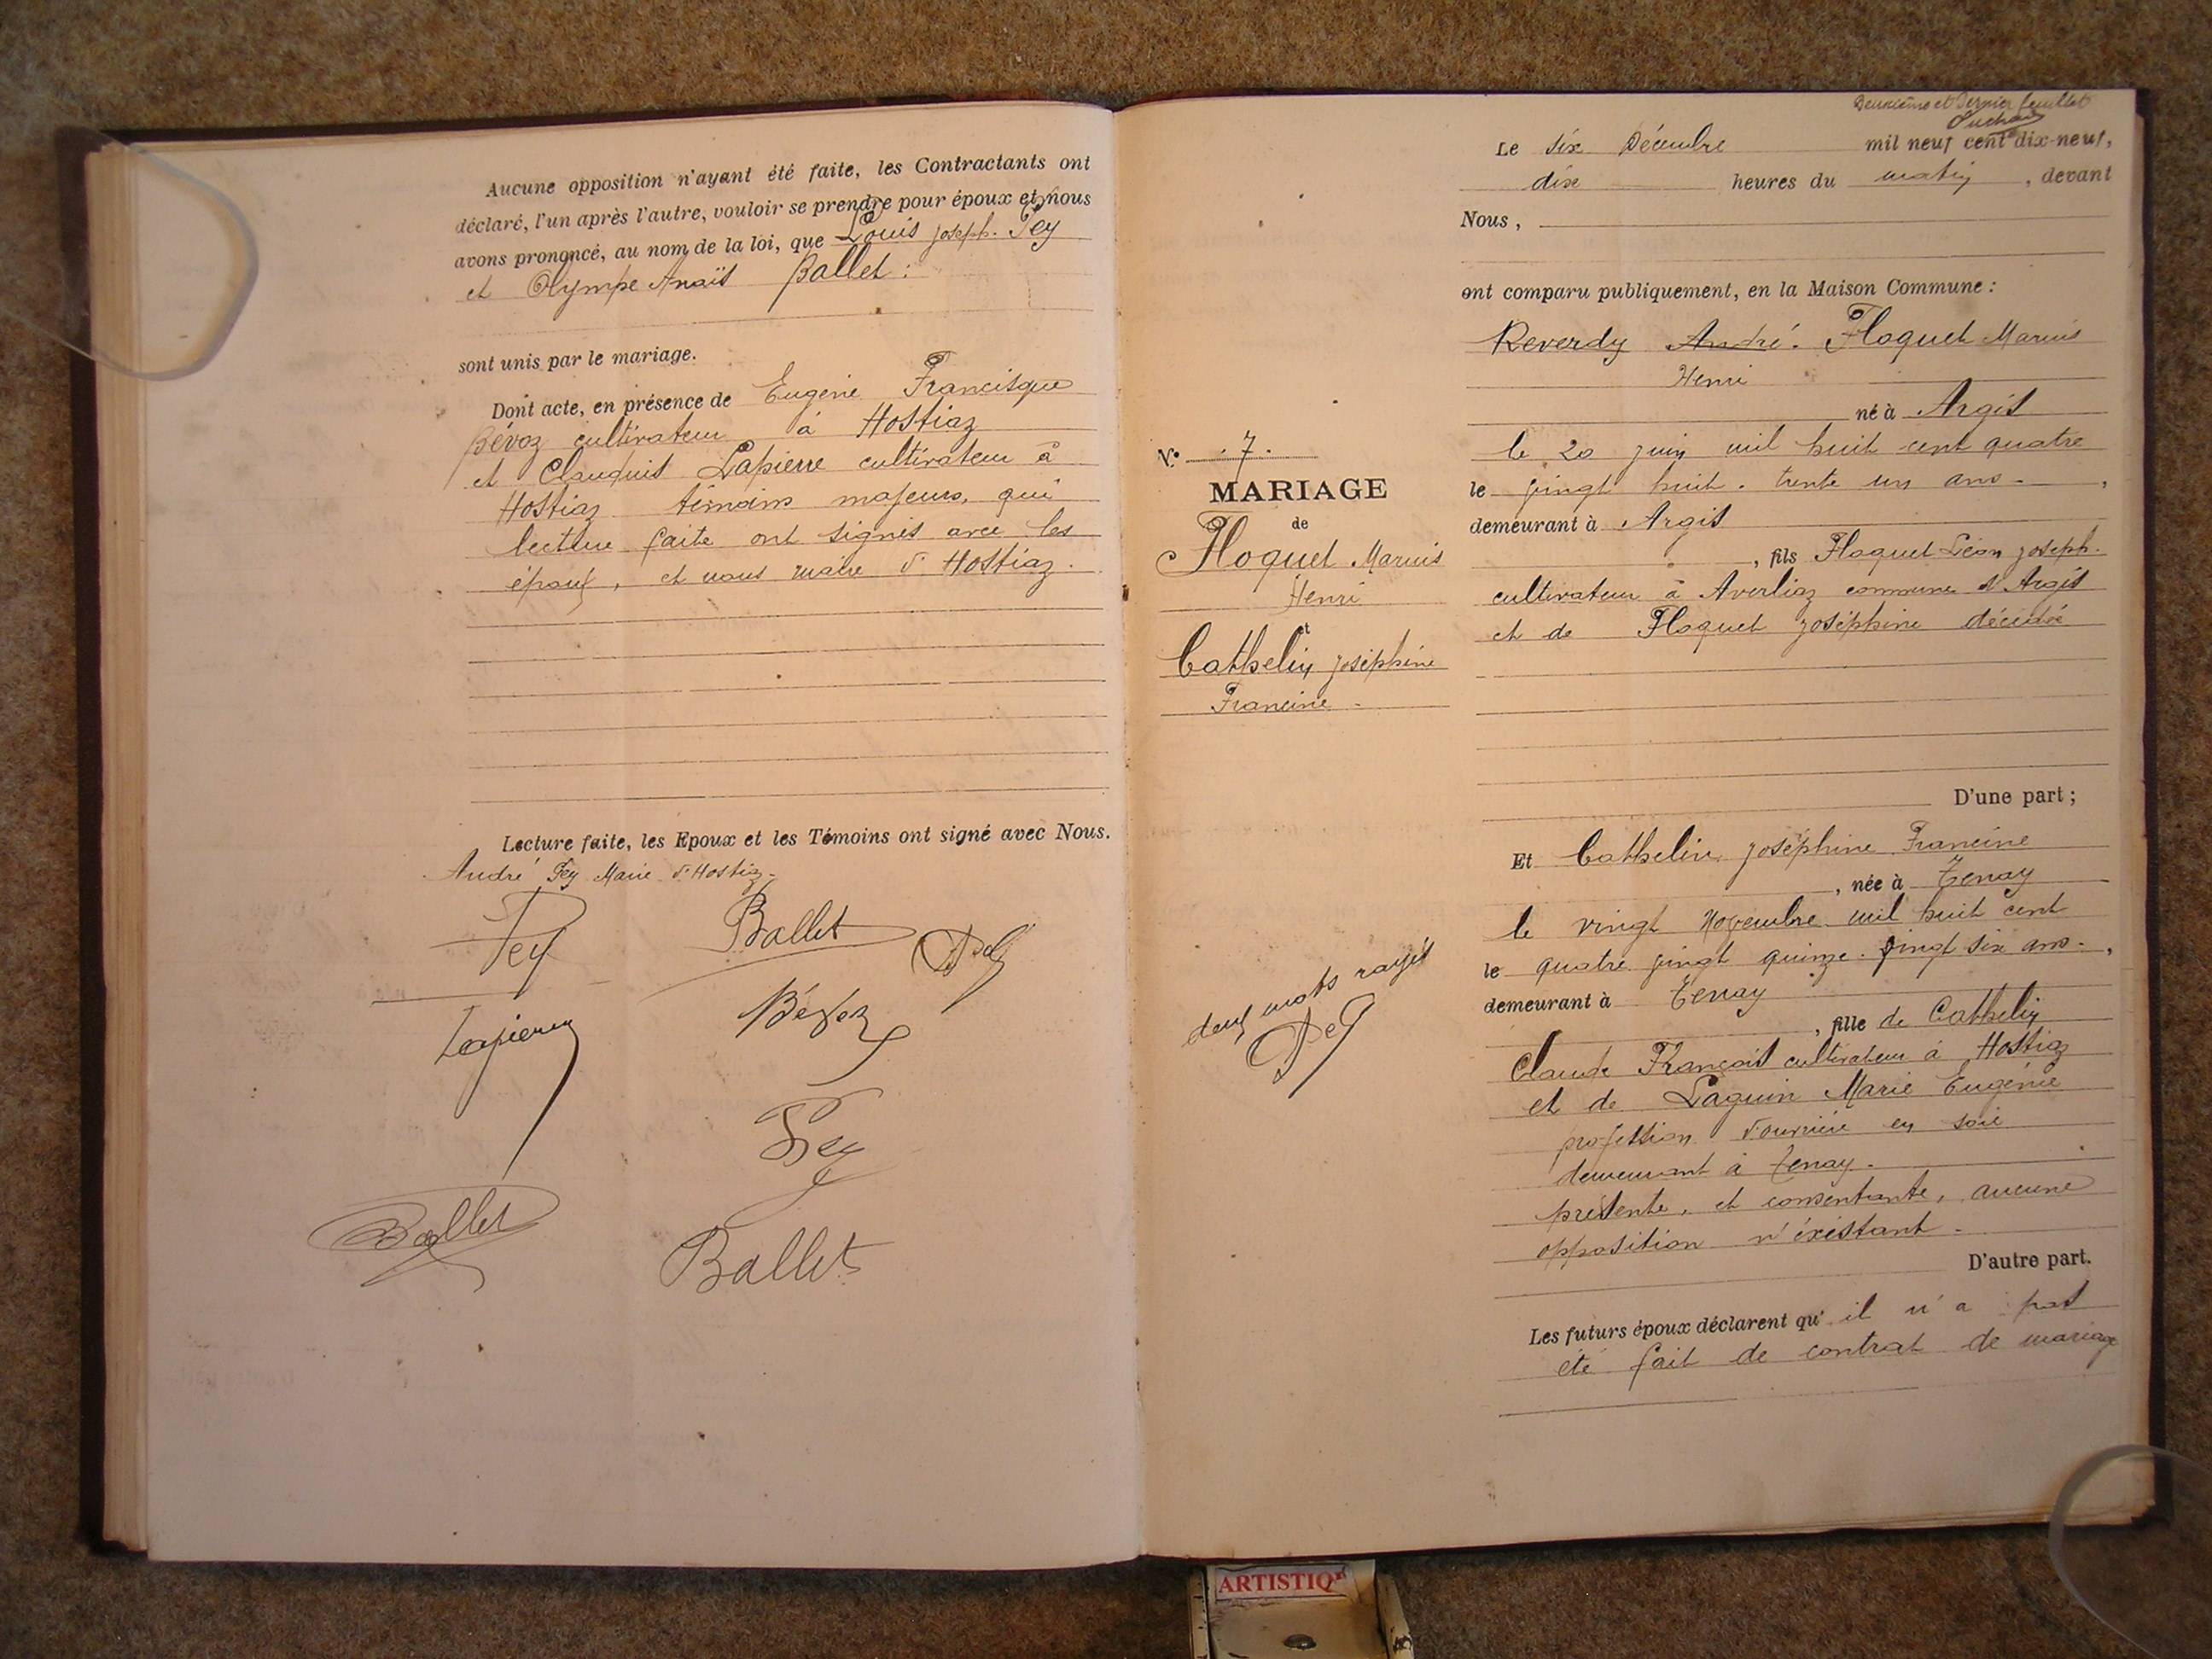 Aucune opposition n'ayant été faite, les Contractants ont
déclaré, l'un après l'autre, vouloir se prendre pour époux et nous
avons prononcé, au nom de la loi, que Louis joseph. Fey
et Olympe Anaïs Ballet :
sont unis par le mariage.
Dont acte, en présence de Eugène Francisque
Bévoz cultivateur à Hostiaz
et Claudius Lapierre cultivateur à
Hostiaz témoins majeurs, qui
lecture faite ont signés avec les
époux, et nous maire d'Hostiaz.
Lecture faite, les Epoux et les Témoins ont signé avec Nous.
André Fey Maire d'Hostiaz.
Fey
Ballet
Bévoz
Lapierre
Fey
Ballet
Ballet
Deuxième et Dernier feuillet
Le six Décembre mil neuf cent dix-neuf,
dix heures du matin, devant
Nous,
ont comparu publiquement, en la Maison Commune :
Reverdy André. Floquet Marius
Henri
né à Argis
le 20 juin mil huit cent quatre
le vingt huit. trente un ans.,
demeurant à Argis
, fils Floquet Léon joseph.
cultivateur à Averliaz commune d'Argis
et de Floquet joséphine décédée
D'une part ;
N° 7.
MARIAGE
de
Floquet Marius
Henri
et
Cathelin joséphine
Francine
Et Cathelin joséphine Francine
, née à Tenay
le vingt Novembre mil huit cent
le quatre vingt quinze. vingt six ans.,
demeurant à Tenay
, fille de Cathelin
Claude François cultivateur à Hostiaz
et de Laguin Marie Eugénie
profession d'ouvrière en soie
demeurant à Tenay.
présente, et consentante, aucune
opposition n'éxistant.
D'autre part.
deux mots rayés
Les futurs époux déclarent qu'il n'a pas
été fait de contrat de mariage
ARTISTIQ